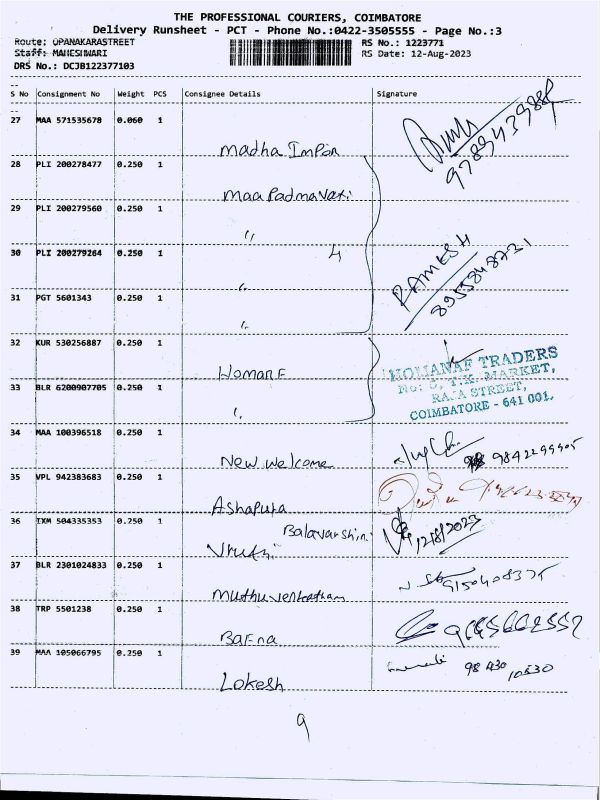 THE PROFESSIONAL COURIERS, COIMBATORE
Delivery Runsheet - PCT - Phone No.:0422-3505555 - Page No.:3
Route: OPANAKARASTREET RS No.: 1223771
Staff: MAHESHWARI RS Date: 12-Aug-2023
DRS No.: DCJB122377103
S No Consignment No Weight PCS Consignee Details Signature
27 MAA 571535678 0.060 1
Madha Impex
28 PLI 200278477 0.250 1
Maa Padmavati
29 PLI 200279560 0.250 1
"
30 PLI 200279264 0.250 1 4
" RAMESH
31 PGT 5601343 0.250 1 8955848731
"
32 KUR 530256887 0.250 1
Homanf
33 BLR 6200907705 0.250 1
"
HOMANAF TRADERS
No: 5, T.K. MARKET,
RAJA STREET,
COIMBATORE - 641 001.
34 MAA 100396518 0.250 1
New welcome
35 VPL 942383683 0.250 1
Ashapura
36 IXM 504335353 0.250 1 Balavarshini
12/8/2023
37 BLR 2301024833 0.250 1
Muthu venkatham 9150408375
38 TRP 5501238 0.250 1
Bafna
39 MAA 105066795 0.250 1 98430 10530
Lokesh
9